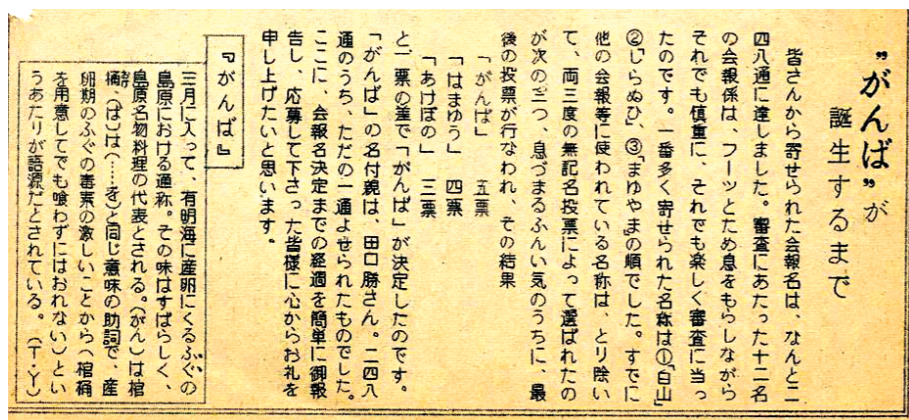 "がんば"が
誕生するまで
皆さんから寄せられた会報名は、なんと二
四八通に達しました。審査にあたった十二名
の会報係は、フーッとため息をもらしながら
それでも慎重に、それでも楽しく審査に当っ
たのです。一番多く寄せられた名称は①「白山」
②「しらぬひ」、③「まゆやま」の順でした。すでに
他の会報等に使われている名称は、とり除い
て、両三度の無記名投票によって選ばれたの
が次の三つ、息づまるふんい気のうちに、最
後の投票が行なわれ、その結果
「がんば」 五票
「はまゆう」 四票
「あけぼの」 三票
と一票の差で「がんば」が決定したのです。
「がんば」の名付親は、田口勝さん。二四八
通のうち、ただの一通よせられたものでした。
ここに、会報名決定までの経過を簡単に御報
告し、応募して下さった皆様に心からお礼を
申し上げたいと思います。
『がんば』
三月に入って、有明海に産卵にくるふぐの
島原における通称。その味はすばらしく、
島原名物料理の代表とされる。(がん)は棺
桶、(ば)は(……を)と同じ意味の助詞で、産
卵期のふぐの毒素の激しいことから(棺桶
を用意してでも喰わずにはおれない)とい
うあたりが語源だとされている。(T・Y)